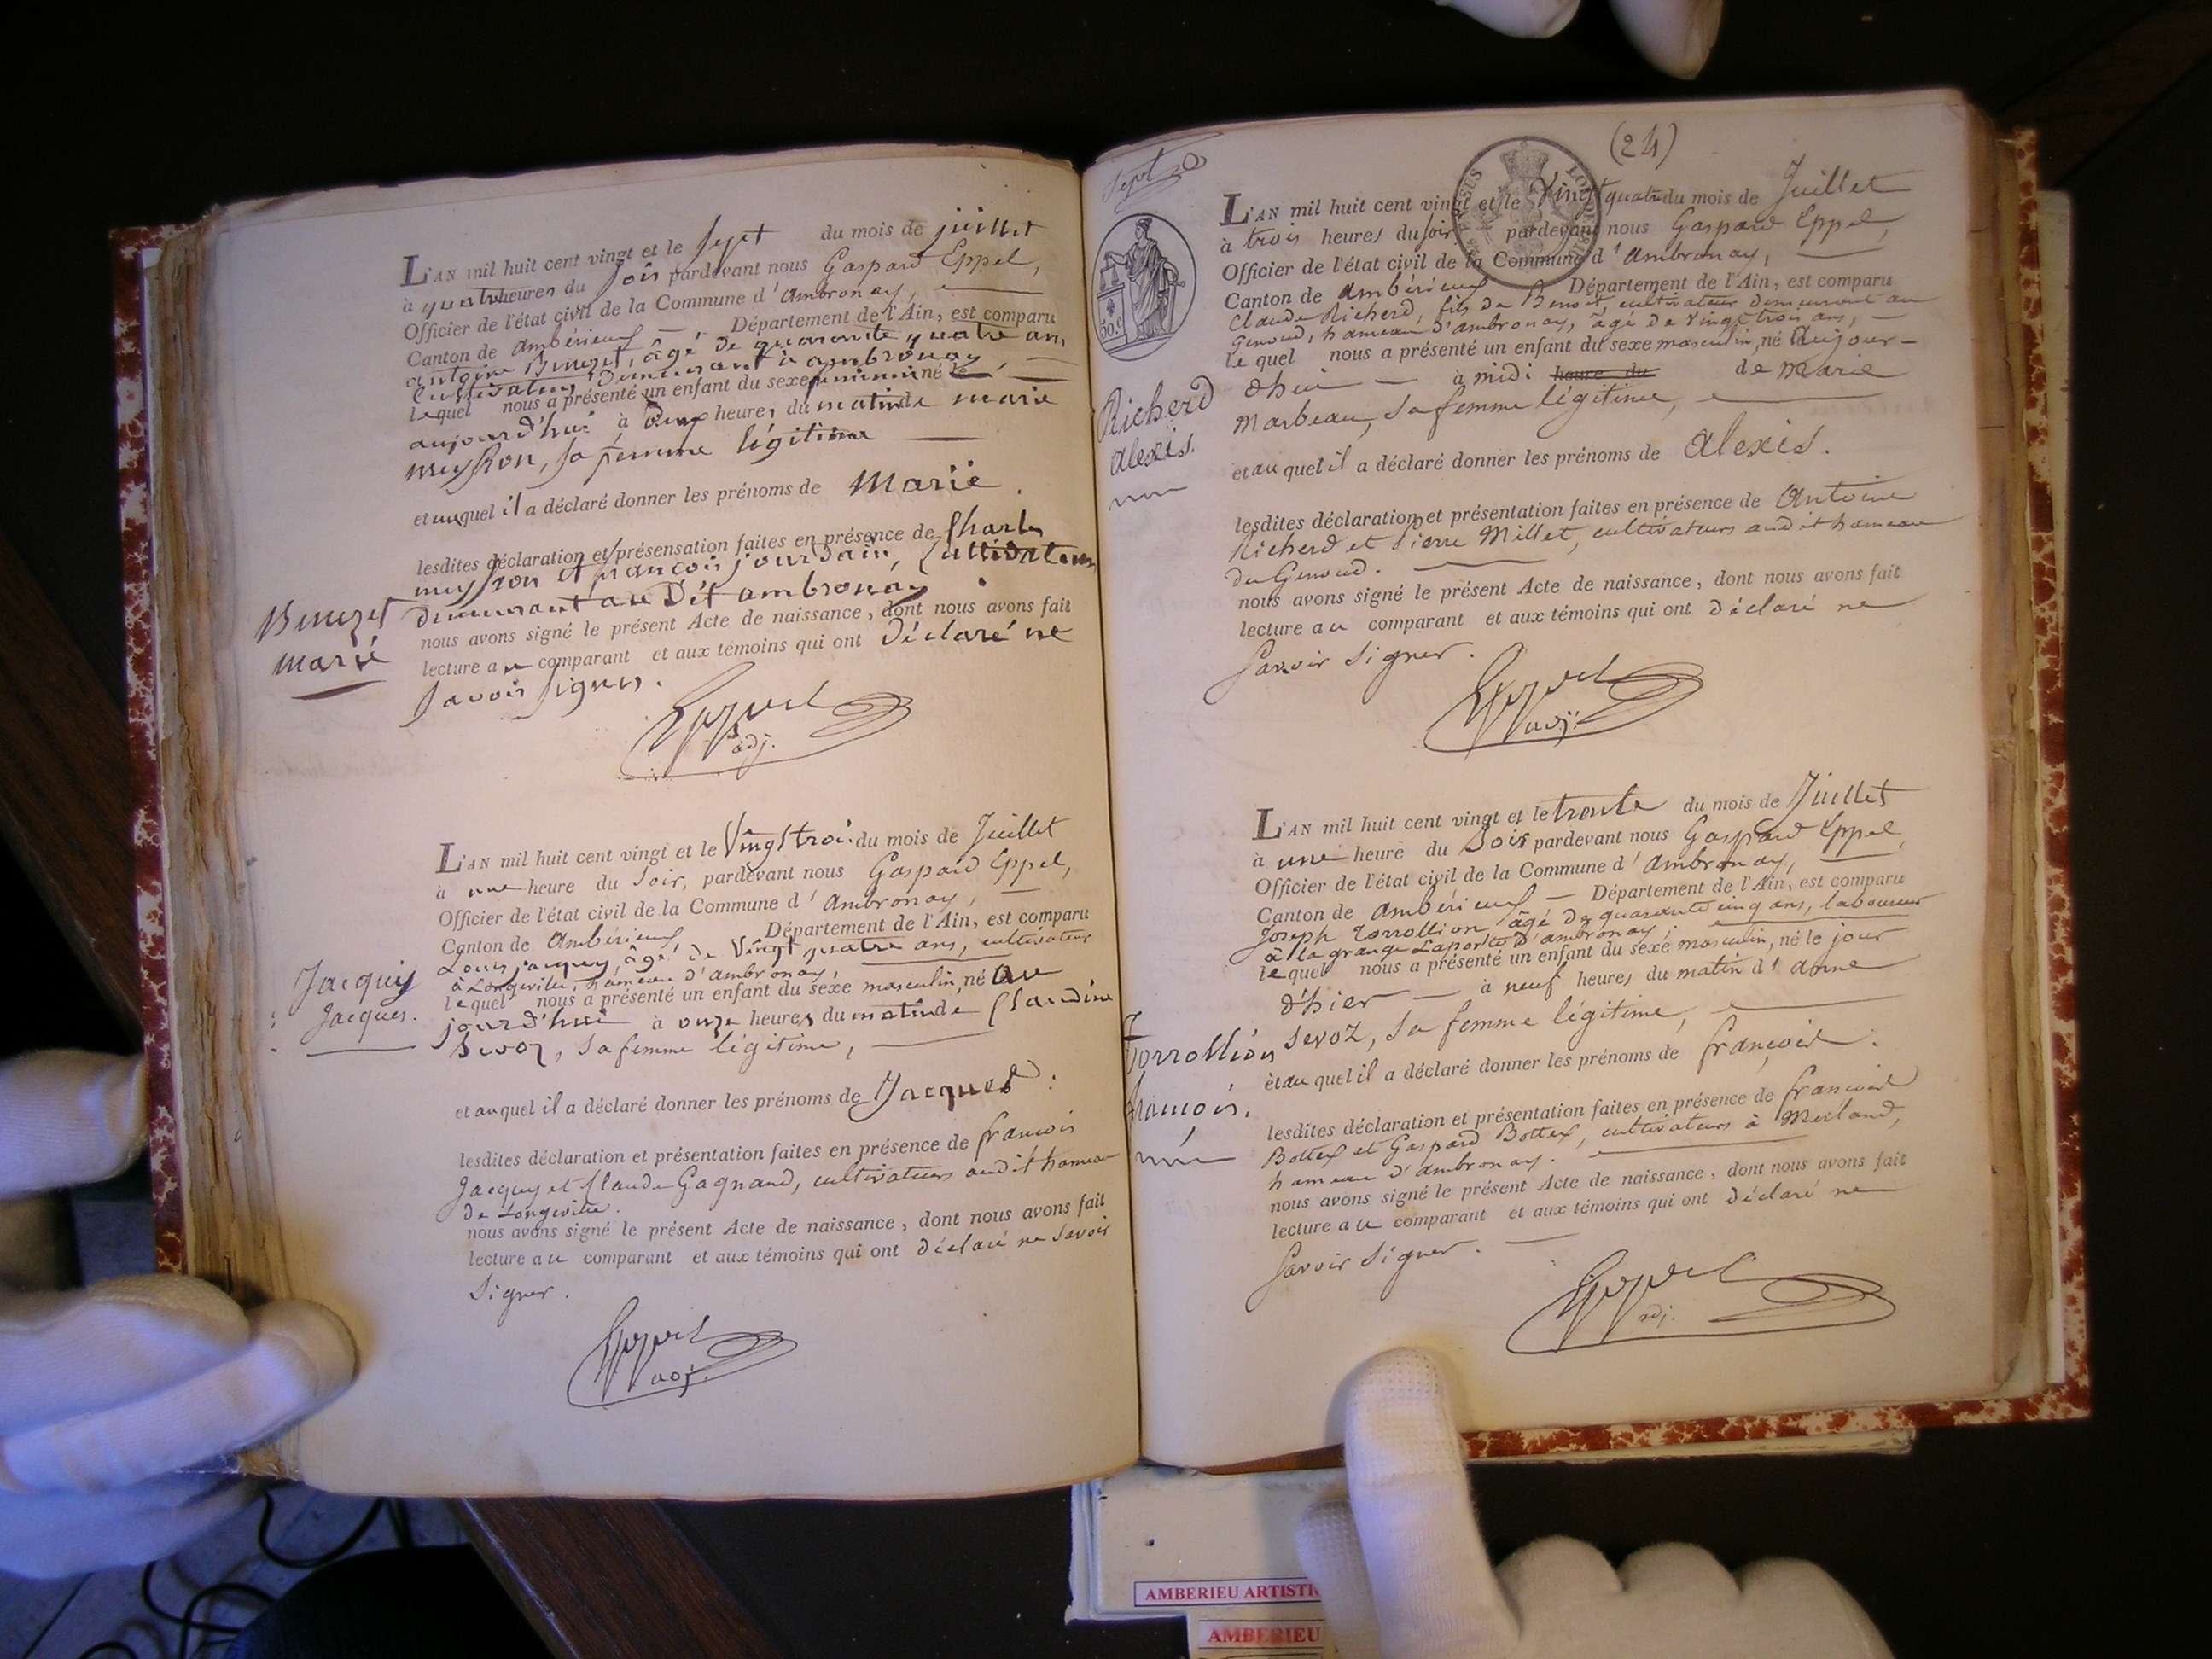 L'AN mil huit cent vingt et le sept du mois de juillet
à quatre heures du soir pardevant nous Gaspard Eppel,
Officier de l'état civil de la Commune d'Ambronay,
Canton de Ambérieux Département de l'Ain, est comparu
antoine Benezet, âgé de quarante quatre ans,
Cultivateur, demeurant à ambronay,
lequel nous a présenté un enfant du sexe feminin né le
aujourd'hui à deux heures du matin de marie
meysson, sa femme légitime
et auquel il a déclaré donner les prénoms de Marie.
lesdites déclaration et présensation faites en présence de Charles
meysson et françois jourdain, Cultivateurs
demeurant au dit ambronay
nous avons signé le présent Acte de naissance, dont nous avons fait
lecture au comparant et aux témoins qui ont déclaré ne
savoir signer.
Benezet
Marie
Eppel
adj.
L'AN mil huit cent vingt et le Vingt trois du mois de Juillet
à une heure du soir, pardevant nous Gaspard Eppel,
Officier de l'état civil de la Commune d'Ambronay,
Canton de Ambérieux Département de l'Ain, est comparu
Louis jacquey, âgé de Vingt quatre ans, cultivateur
à Longeville, hameau d'ambronay,
lequel nous a présenté un enfant du sexe masculin, né au
jourd'hui à onze heures du matin de Claudine
Sevoz, sa femme légitime,
et auquel il a déclaré donner les prénoms de Jacques.
lesdites déclaration et présentation faites en présence de francois
Jacquey et Claude Gagnand, cultivateurs audit hameau
de Longeville.
nous avons signé le présent Acte de naissance, dont nous avons fait
lecture au comparant et aux témoins qui ont déclaré ne savoir
signer.
Jacquey
Jacques.
Eppel
adj.
Sept
(24)
30.c
L'AN mil huit cent vingt et le Vingt quatre du mois de Juillet
à trois heures du soir pardevant nous Gaspard Eppel,
Officier de l'état civil de la Commune d'Ambronay,
Canton de Ambérieux Département de l'Ain, est comparu
Claude Richerd, fils de Benoit, cultivateur demeurant au
Genoud, hameau d'ambronay, âgé de Vingt trois ans,
lequel nous a présenté un enfant du sexe masculin, né aujour-
dhui à midi heure du de Marie
Marbeau, sa femme légitime,
et auquel il a déclaré donner les prénoms de Alexis.
lesdites déclaration et présentation faites en présence de Antoine
Richerd et Pierre Millet, cultivateurs audit hameau
du Genoud.
nous avons signé le présent Acte de naissance, dont nous avons fait
lecture au comparant et aux témoins qui ont déclaré ne
Savoir signer.
Richerd
alexis.
Eppel
adj.
L'AN mil huit cent vingt et le trente du mois de Juillet
à une heure du Soir pardevant nous Gaspard Eppel
Officier de l'état civil de la Commune d'Ambronay,
Canton de Ambérieux Département de l'Ain, est comparu
Joseph Torrollion, âgé de quarante cinq ans, laboureur
à la grange Laporte d'ambronay,
lequel nous a présenté un enfant du sexe masculin, né le jour
d'hier à neuf heures du matin d'anne
Sevoz, sa femme légitime,
et auquel il a déclaré donner les prénoms de françois.
lesdites déclaration et présentation faites en présence de françois
Bottex et Gaspard Bottex, cultivateurs à Merland,
hameau d'ambronay.
nous avons signé le présent Acte de naissance, dont nous avons fait
lecture au comparant et aux témoins qui ont déclaré ne
Savoir signer.
Torrollion
françois.
Eppel
adj.
AMBERIEU ARTISTI
AMBERIEU